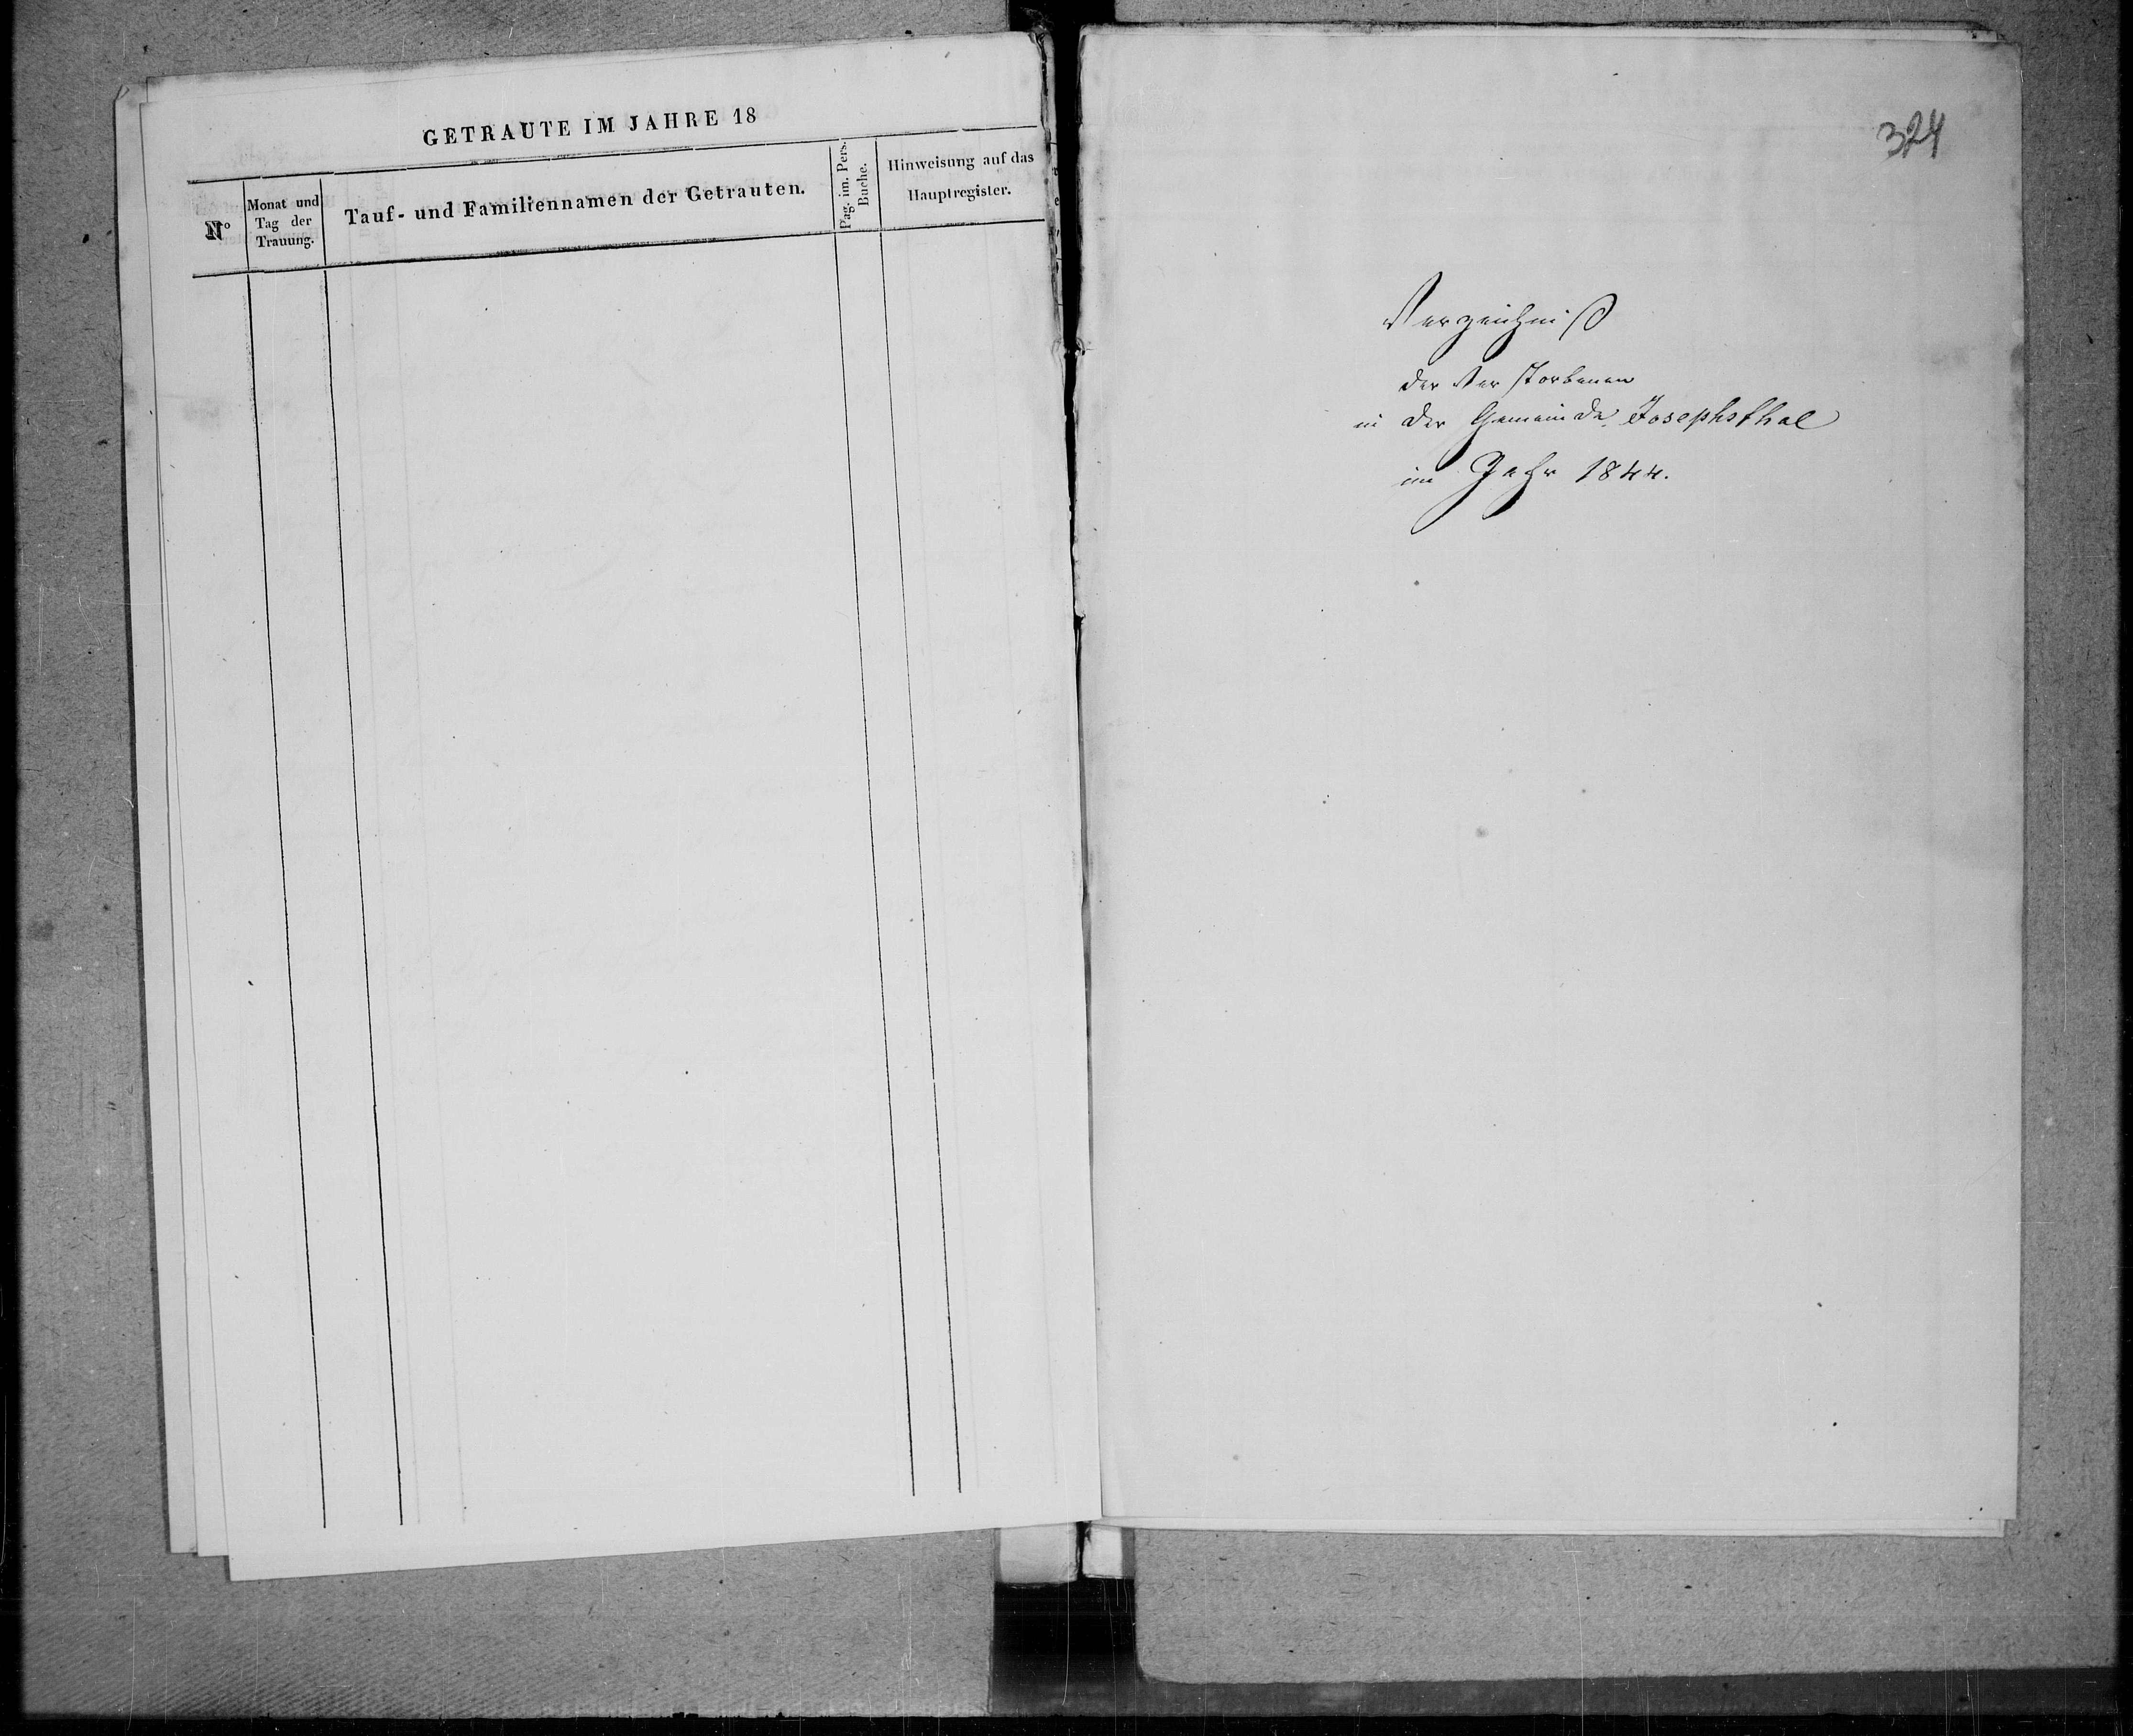 GETRAUTE IM JAHRE 18
No
Monat und
Tag der
Trauung.
Tauf- und Familiennamen der Getrauten.
Pag. im. Pers.
Buche.
Hinweisung auf das
Hauptregister.
324
Verzeichniß
der Verstorbenen
in der Gemeinde Josephsthal
im Jahr 1844.